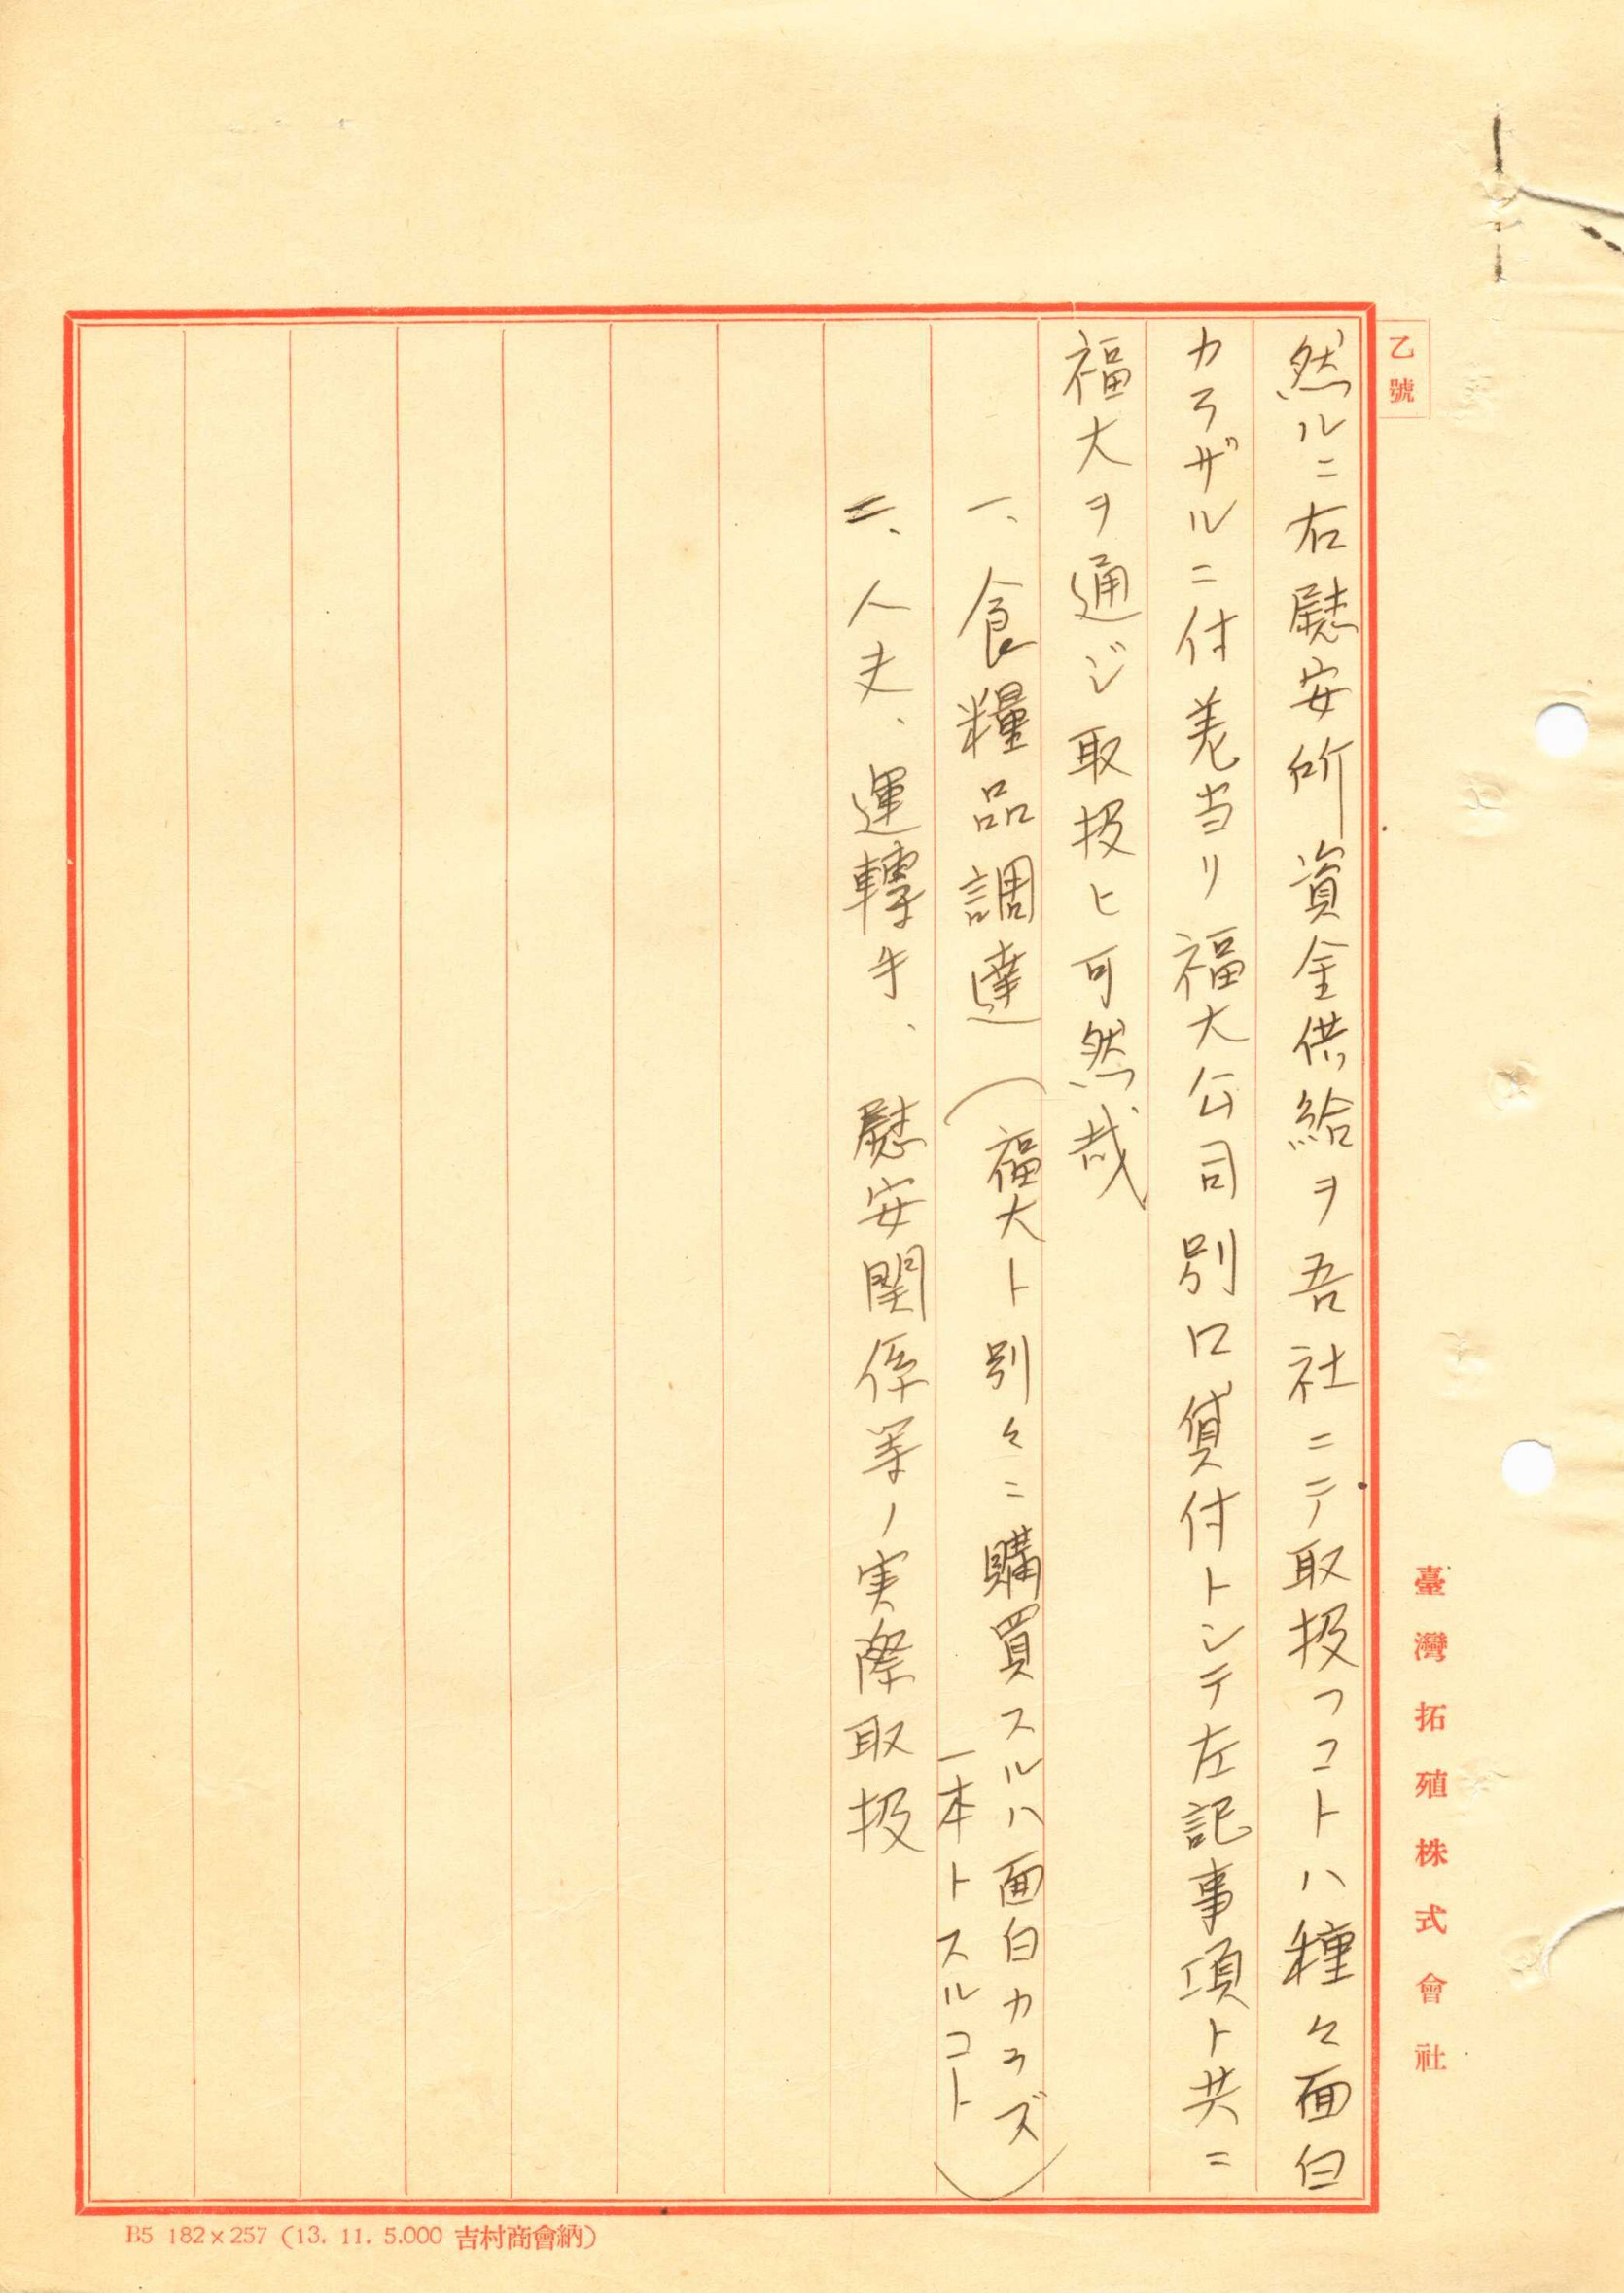 乙號
臺灣拓殖株式會社
然ルニ右慰安所資金供給ヲ吾社ニテ取扱フコトハ種々面白
カラザルニ付差当リ福大公司別口貸付トシテ左記事項ト共ニ
福大ヲ通ジ取扱ヒ可然哉
一、食糧品調達(福大ト別々ニ購買スルハ面白カラズ
一本トスルコト)
二、人夫、運轉手、慰安関係等ノ実際取扱
B5 182×257 (13. 11. 5.000 吉村商會納)